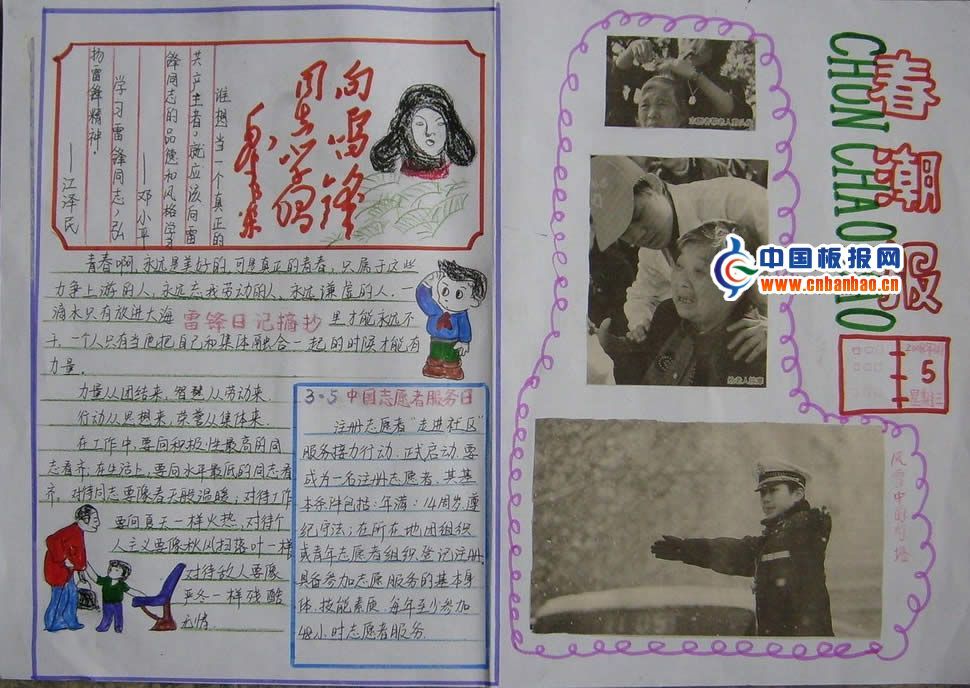 向雷锋
同志学习
毛泽东
谁想当一个真正的
共产主者。就应该向雷
锋同志的品德和风格学习
——邓小平
学习雷锋同志，弘
扬雷锋精神。
——江泽民
青春啊,永远是美好的,可是真正的青春,只属于这些
力争上游的人,永远忘我劳动的人,永远谦虚的人.一
滴水只有放进大海
里才能永远不
雷锋日记摘抄
干,一个人只有当他把自己和集体融合一起的时候才能有
力量.
力量从团结来,智慧从劳动来.
行动从思想来,荣誉从集体来.
在工作中.要向积极性最高的同
志看齐,在生活上,要向水平最低的同志看
齐,对待同志要像春天般温暖;对待工作
要向夏天一样火热;对待个
人主义要像秋风扫落叶一样
对待敌人要像
严冬一样残酷
无情.
3-5 中国志愿者服务日
注册志愿者"走进社区"
服务接力行动.正式启动.要
成为一名注册志愿者.其基
本条件包括:年满14周岁,遵
纪守法;在所在地团组织
或青年志愿者组织登记注册
具备参加志愿服务的基本身
体.技能素质.每年至少参加
48小时志愿者服务.
春潮报
CHUN CHAO BAO
5
星期三
志愿者帮老人剪头发
给老人按摩
风雪中的灯塔
中国板报网
www.cnbanbao.cn